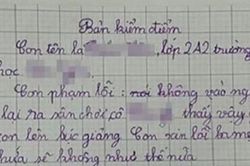 Bản kiểm điểm
Con tên là lớp 2A2 trường
học
Con phạm lỗi: nói không vào ng
lại ra sân chơi cô thấy vậy
con lên lớp giảng Con xin lỗi hứa
hứa sẽ không như thế nữa